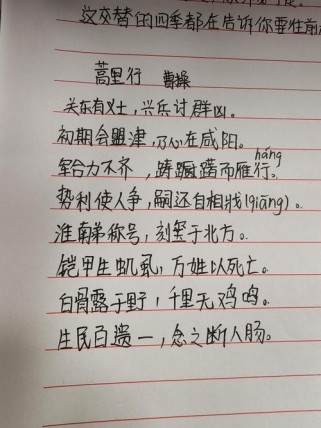 这交替的四季都在告诉你要往前
蒿里行 曹操
关东有义士，兴兵讨群凶。
初期会盟津，乃心在咸阳。
军合力不齐，踌躇而雁行(háng)。
势利使人争，嗣还自相戕(qiāng)。
淮南弟称号，刻玺于北方。
铠甲生虮虱，万姓以死亡。
白骨露于野，千里无鸡鸣。
生民百遗一，念之断人肠。